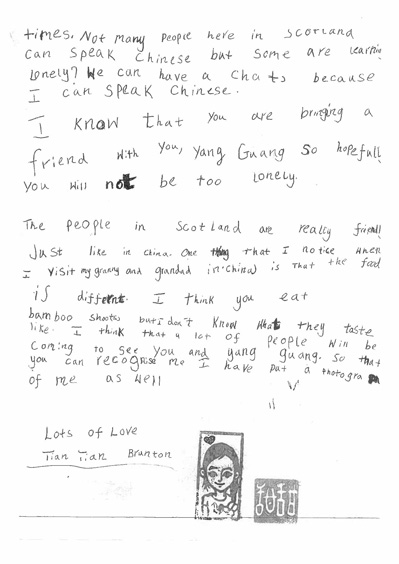 times. Not many people here in Scotland
can speak Chinese but some are learnin
lonely? We can have a chats because
I can speak Chinese.
I know that you are bringing a
friend with you, Yang Guang so hopefull
you will not be too lonely.
The people in Scotland are really friendl
Just like in China. One thing that I notice when
I visit my granny and grandad in China) is that the food
is different. I think you eat
bamboo shoots but I don't know what they taste
like. I think that a lot of people will be
coming to see you and yang guang. So that
you can recognise me I have put a photogra
of me as well
Lots of Love
Tian Tian Branton
甜甜